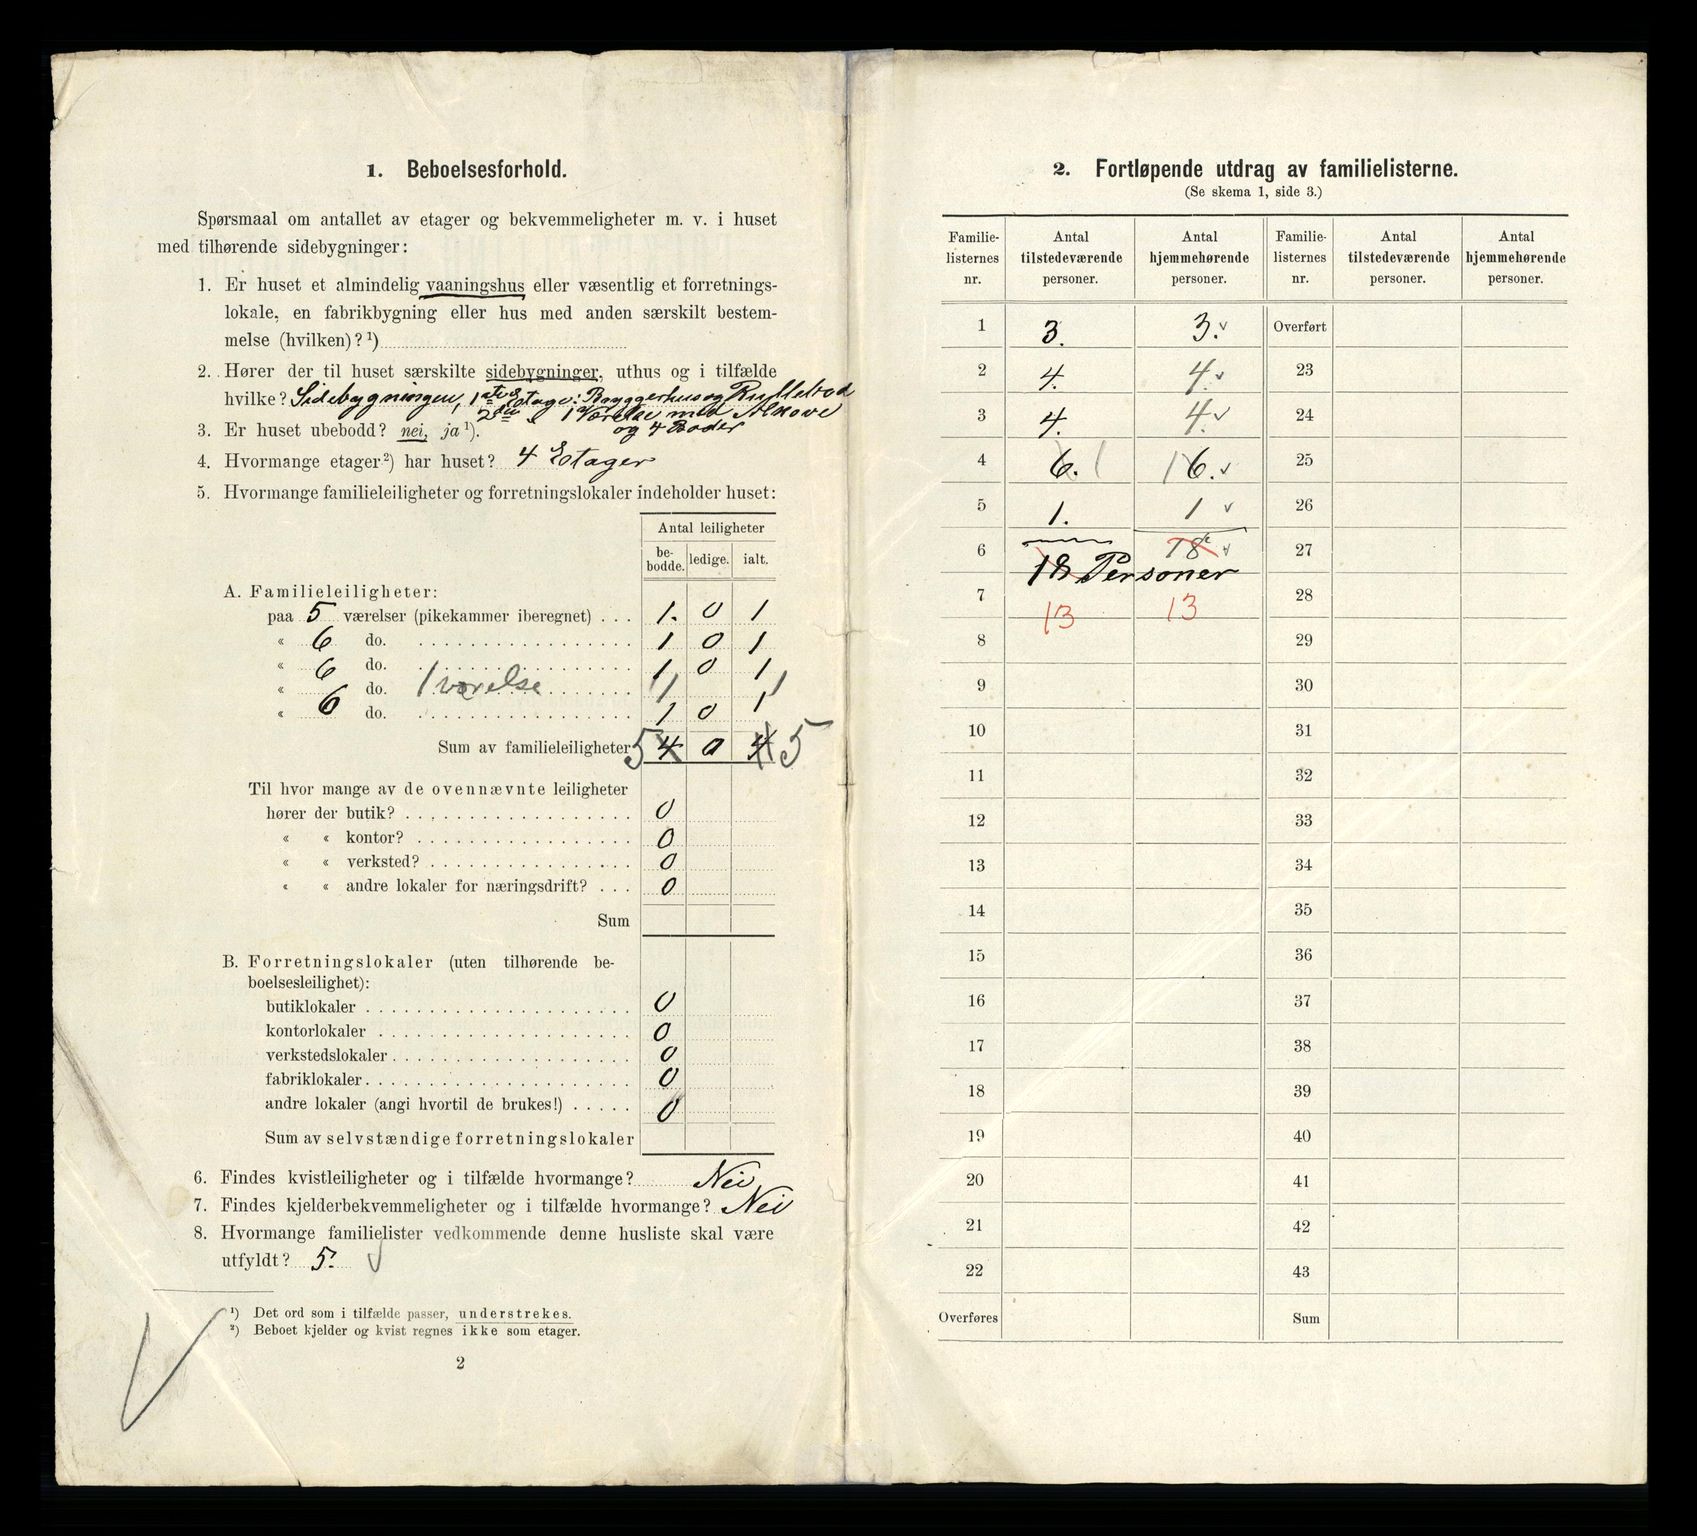 1. Beboelsesforhold.
Spørsmaal om antallet av etager og bekvemmeligheter m. v. i huset
med tilhørende sidebygninger:
1. Er huset et almindelig vaaningshus eller væsentlig et forretnings-
lokale, en fabrikbygning eller hus med anden særskilt bestem-
melse (hvilken)? ¹)
2. Hører der til huset særskilte sidebygninger, uthus og i tilfælde
hvilke? Sidebygningen, 1ste Etage: Bryggerhus og Rullebod
2den " 1 Værelse med Alkove
3. Er huset ubebodd? nei, ja ¹). og 4 Boder
4. Hvormange etager ²) har huset? 4 Etager
5. Hvormange familieleiligheter og forretningslokaler indeholder huset:
Antal leiligheter
be-
bodde. ledige. ialt.
A. Familieleiligheter:
paa 5 værelser (pikekammer iberegnet) . . . 1. 0 1
« 6 do. 1 0 1
« 6 do. 1 0 1
« do. 1 værelse 1 1
« 6 do. 1 0 1
Sum av familieleiligheter 5 4 0 4 5
Til hvor mange av de ovennævnte leiligheter
hører der butik? 0
« « kontor? 0
« « verksted? 0
« « andre lokaler for næringsdrift? . . . 0
Sum
B. Forretningslokaler (uten tilhørende be-
boelsesleilighet):
butiklokaler 0
kontorlokaler 0
verkstedslokaler 0
fabriklokaler 0
andre lokaler (angi hvortil de brukes!) 0
Sum av selvstændige forretningslokaler
6. Findes kvistleiligheter og i tilfælde hvormange? Nei
7. Findes kjelderbekvemmeligheter og i tilfælde hvormange? Nei
8. Hvormange familielister vedkommende denne husliste skal være
utfyldt? 5.
¹) Det ord som i tilfælde passer, understrekes.
²) Beboet kjelder og kvist regnes ikke som etager.
2
2. Fortløpende utdrag av familielisterne.
(Se skema 1, side 3.)
Familie-
listernes
nr. Antal
tilstedeværende
personer. Antal
hjemmehørende
personer. Familie-
listernes
nr. Antal
tilstedeværende
personer. Antal
hjemmehørende
personer.
1 3. 3. Overført
2 4. 4. 23
3 4. 4. 24
4 6. 1 1 6. 25
5 1. 1 26
6 18 27
18 Personer
7 13 13 28
8 29
9 30
10 31
11 32
12 33
13 34
14 35
15 36
16 37
17 38
18 39
19 40
20 41
21 42
22 43
Overføres Sum